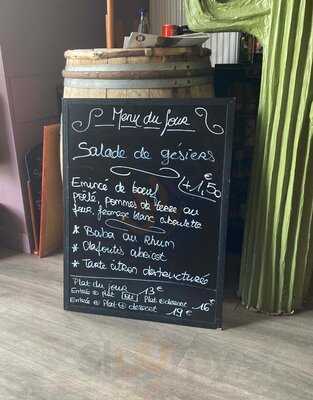 Menu du Jour
Salade de gésiers
Emincé de bœuf /+1,50
poêlé, pommes de terre au
four, fromage blanc ciboulette
* Baba au Rhum
* Clafoutis abricot
* Tarte citron destructurée
Plat du jour 13€
Entrée ⊕ Plat ou Plat ⊕ dessert 16€
Entrée ⊕ Plat ⊕ dessert 19€